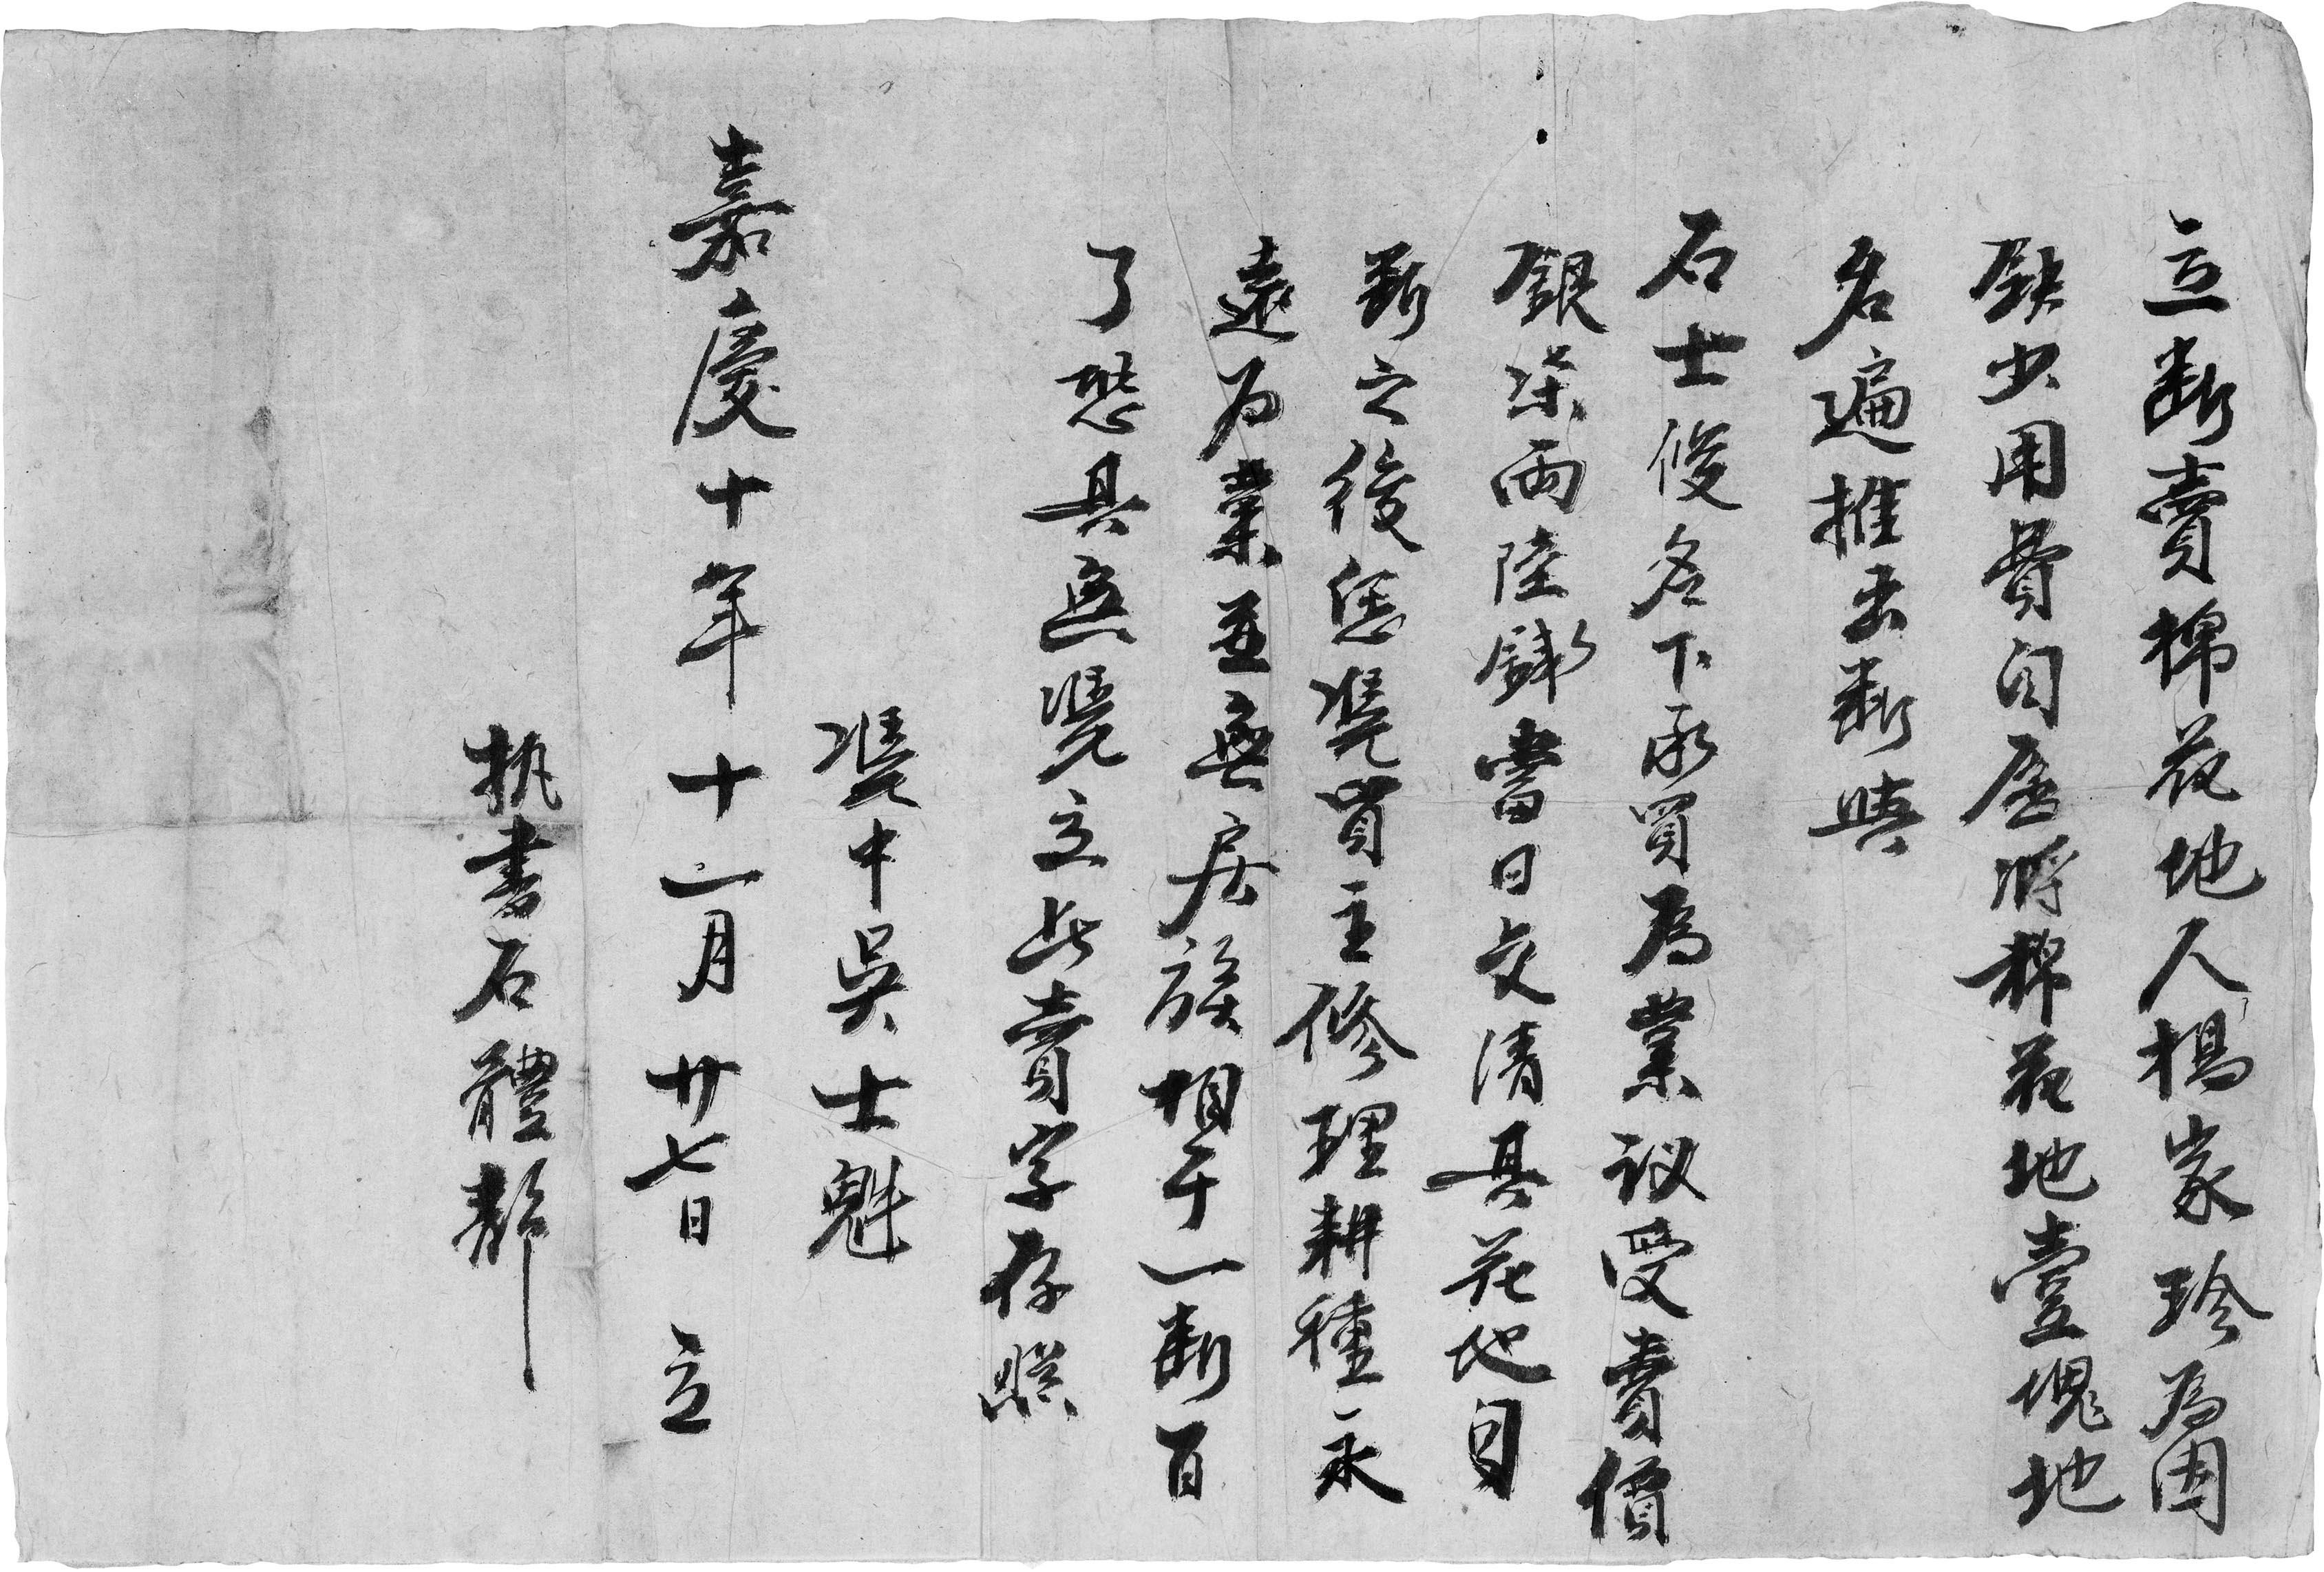 立断賣棉花地人楊家珍為因
缺少用費自愿將棉花地壹塊地
名遍推出断與
石士俊名下承買為業议受賣價
銀柒兩陸錢當日交清其花地自
断之後恁凴買主修理耕種永
遠为業並無房族相干一断百
了恐具無凴立此賣字存照
凴中吳士魁
嘉慶十年十一月廿七日 立
执書石體都